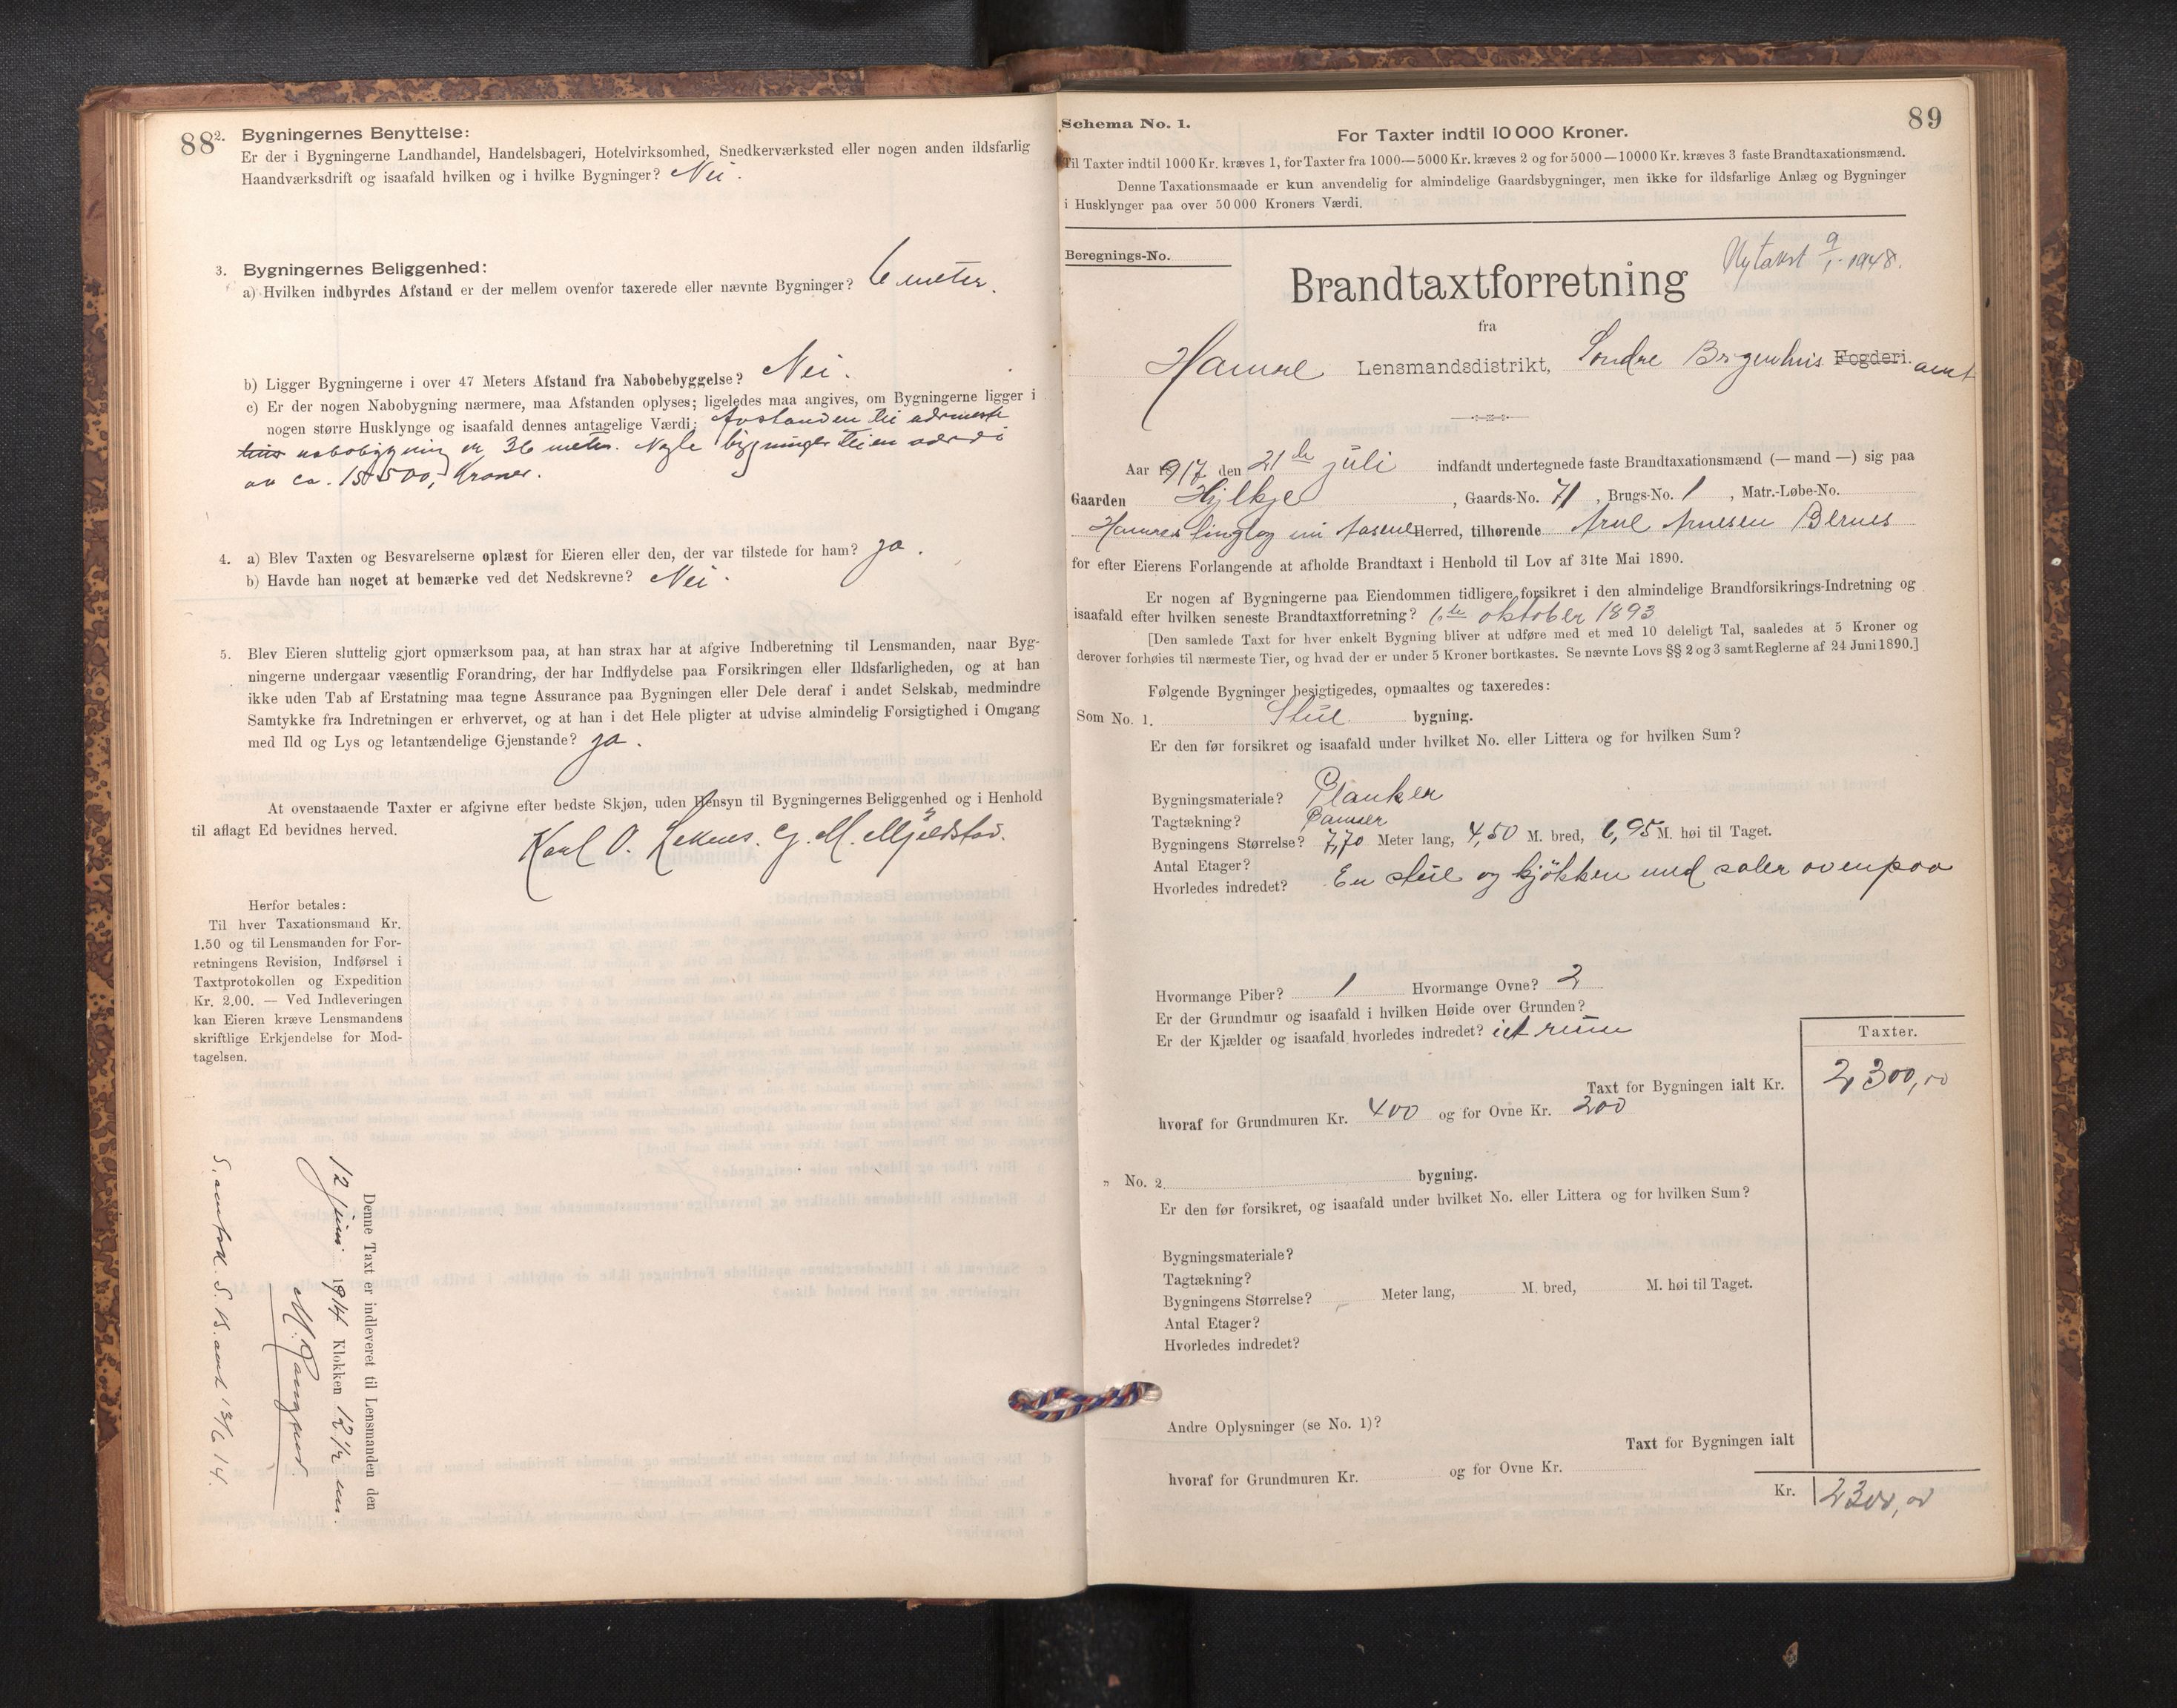 88
2. Bygningernes Benyttelse:
Er der i Bygningerne Landhandel, Handelsbageri, Hotelvirksomhed, Snedkerværksted eller nogen anden ildsfarlig
Haandværksdrift og isaafald hvilken og i hvilke Bygninger? Nei.
3. Bygningernes Beliggenhed:
a) Hvilken indbyrdes Afstand er der mellem ovenfor taxerede eller nævnte Bygninger? 6 meter.
b) Ligger Bygningerne i over 47 Meters Afstand fra Nabobebyggelse? Nei.
c) Er der nogen Nabobygning nærmere, maa Afstanden oplyses; ligeledes maa angives, om Bygningerne ligger i
nogen større Husklynge og isaafald dennes antagelige Værdi: Avstanden til nærmeste
nabobygning er 36 meter. Nogle bygninger til en værdi
av ca. 15500, Kroner.
4. a) Blev Taxten og Besvarelserne oplæst for Eieren eller den, der var tilstede for ham? ja.
b) Havde han noget at bemærke ved det Nedskrevne? Nei.
5. Blev Eieren sluttelig gjort opmærksom paa, at han strax har at afgive Indberetning til Lensmanden, naar Byg-
ningerne undergaar væsentlig Forandring, der har Indflydelse paa Forsikringen eller Ildsfarligheden, og at han
ikke uden Tab af Erstatning maa tegne Assurance paa Bygningen eller Dele deraf i andet Selskab, medmindre
Samtykke fra Indretningen er erhvervet, og at han i det Hele pligter at udvise almindelig Forsigtighed i Omgang
med Ild og Lys og letantændelige Gjenstande? ja.
At ovenstaaende Taxter er afgivne efter bedste Skjøn, uden Hensyn til Bygningernes Beliggenhed og i Henhold
til aflagt Ed bevidnes herved.
Karl O. M. Mjeldstad.
Herfor betales:
Til hver Taxationsmand Kr.
1.50 og til Lensmanden for For-
retningens Revision, Indførsel i
Taxtprotokollen og Expedition
Kr. 2.00. — Ved Indleveringen
kan Eieren kræve Lensmandens
skriftlige Erkjendelse for Mod-
tagelsen.
Denne Taxt er indleveret til Lensmanden den
12 juni 1914 Klokken 12 1/2 em.
S. B. amt 13/6 14.
89
Schema No. 1.
For Taxter indtil 10 000 Kroner.
Til Taxter indtil 1000 Kr. kræves 1, for Taxter fra 1000—5000 Kr. kræves 2 og for 5000—10000 Kr. kræves 3 faste Brandtaxationsmænd.
Denne Taxationsmaade er kun anvendelig for almindelige Gaardsbygninger, men ikke for ildsfarlige Anlæg og Bygninger
i Husklynger paa over 50 000 Kroners Værdi.
Beregnings-No.
Nytakst 9/1-1948.
Brandtaxtforretning
fra
Hamre Lensmandsdistrikt, Søndre Bergenhus Fogderi. amt
Aar 1917 den 21de juli indfandt undertegnede faste Brandtaxationsmænd (— mand —) sig paa
Gaarden Hjelkje, Gaards-No. 71, Brugs-No. 1, Matr.-Løbe-No.
Hamre tinglag Herred, tilhørende Arne Bernes
for efter Eierens Forlangende at afholde Brandtaxt i Henhold til Lov af 31te Mai 1890.
Er nogen af Bygningerne paa Eiendommen tidligere forsikret i den almindelige Brandforsikrings-Indretning og
isaafald efter hvilken seneste Brandtaxtforretning? 6te oktober 1893
[Den samlede Taxt for hver enkelt Bygning bliver at udføre med et med 10 deleligt Tal, saaledes at 5 Kroner og
derover forhøies til nærmeste Tier, og hvad der er under 5 Kroner bortkastes. Se nævnte Lovs §§ 2 og 3 samt Reglerne af 24 Juni 1890.]
Følgende Bygninger besigtigedes, opmaaltes og taxeredes:
Som No. 1. Stue bygning.
Er den før forsikret og isaafald under hvilket No. eller Littera og for hvilken Sum?
Bygningsmateriale? Planker
Tagtækning? Panner
Bygningens Størrelse? 7,70 Meter lang, 4,50 M. bred, 6,95 M. høi til Taget.
Antal Etager?
Hvorledes indredet? En stue og kjøkken med saler ovenpaa
Hvormange Piber? 1 Hvormange Ovne? 2
Er der Grundmur og isaafald i hvilken Høide over Grunden?
Er der Kjælder og isaafald hvorledes indredet? iet rum
Taxter.
Taxt for Bygningen ialt Kr. 2300,00
hvoraf for Grundmuren Kr. 400 og for Ovne Kr. 200
" No. 2 bygning.
Er den før forsikret, og isaafald under hvilket No. eller Littera og for hvilken Sum?
Bygningsmateriale?
Tagtækning?
Bygningens Størrelse? Meter lang, M. bred, M. høi til Taget.
Antal Etager?
Hvorledes indredet?
Andre Oplysninger (se No. 1)?
Taxt for Bygningen ialt
hvoraf for Grundmuren Kr. og for Ovne Kr.
Kr. 2300,00